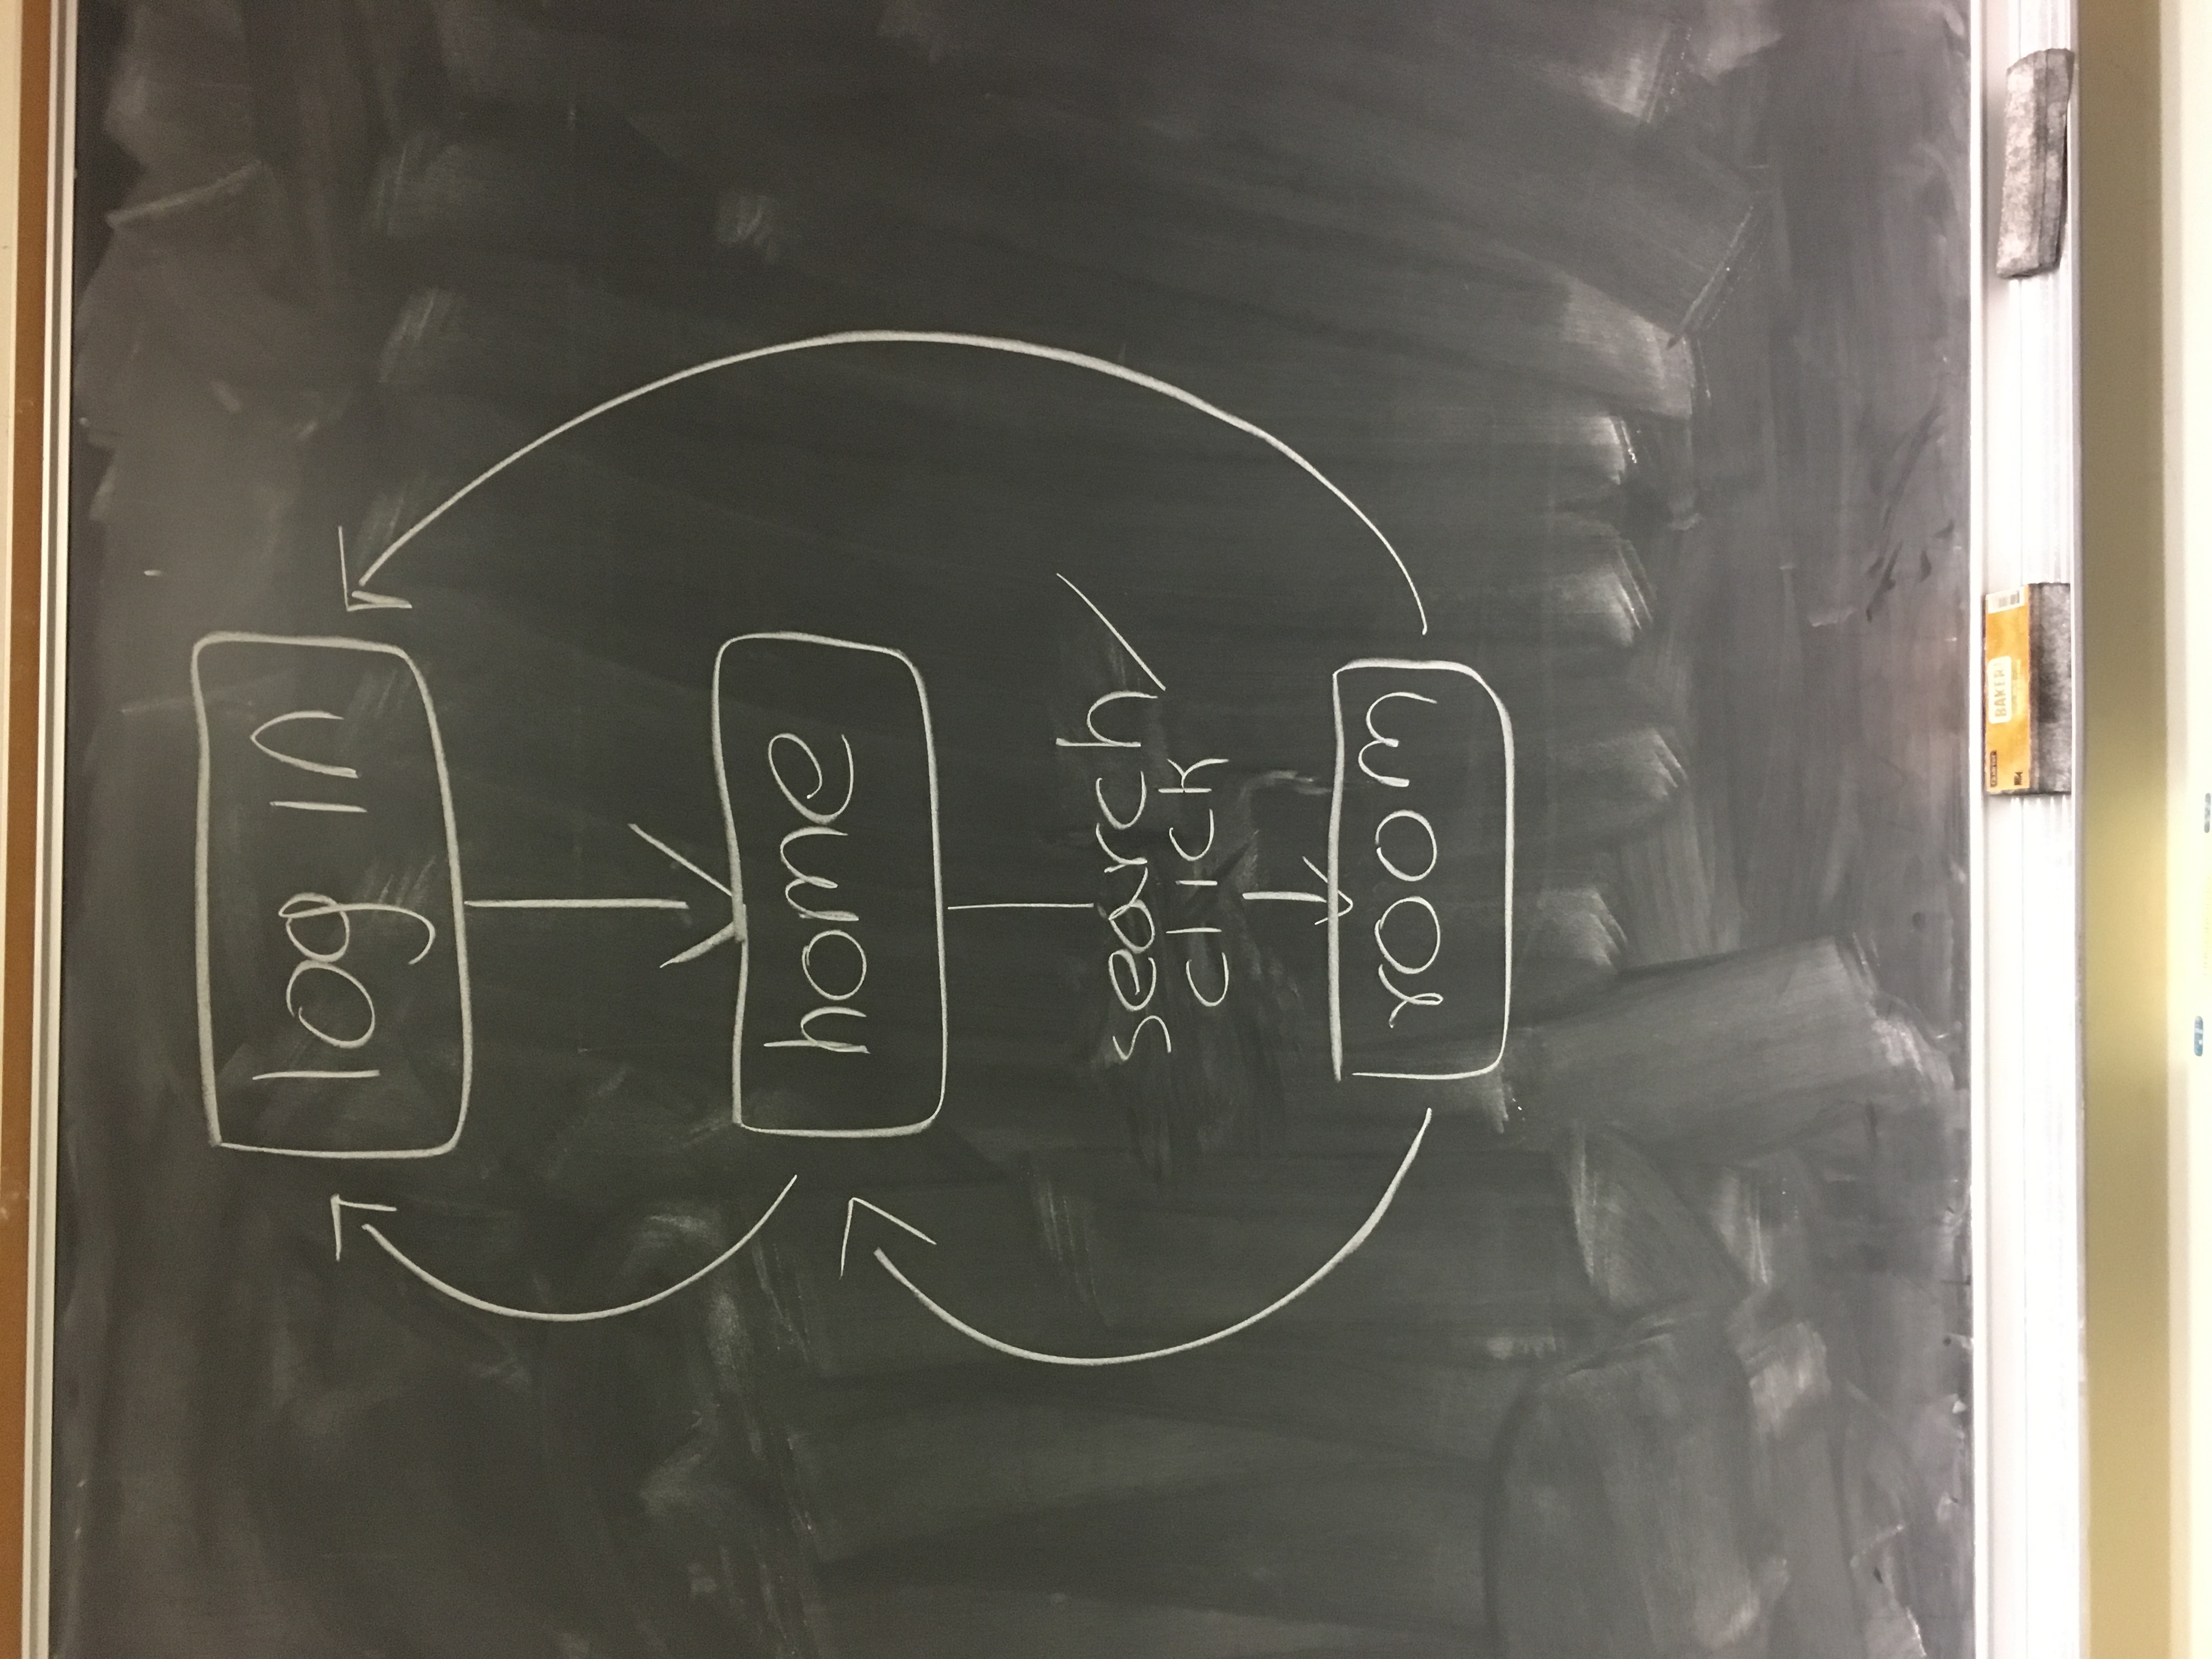 log in
home
search/
click
room
BAKER